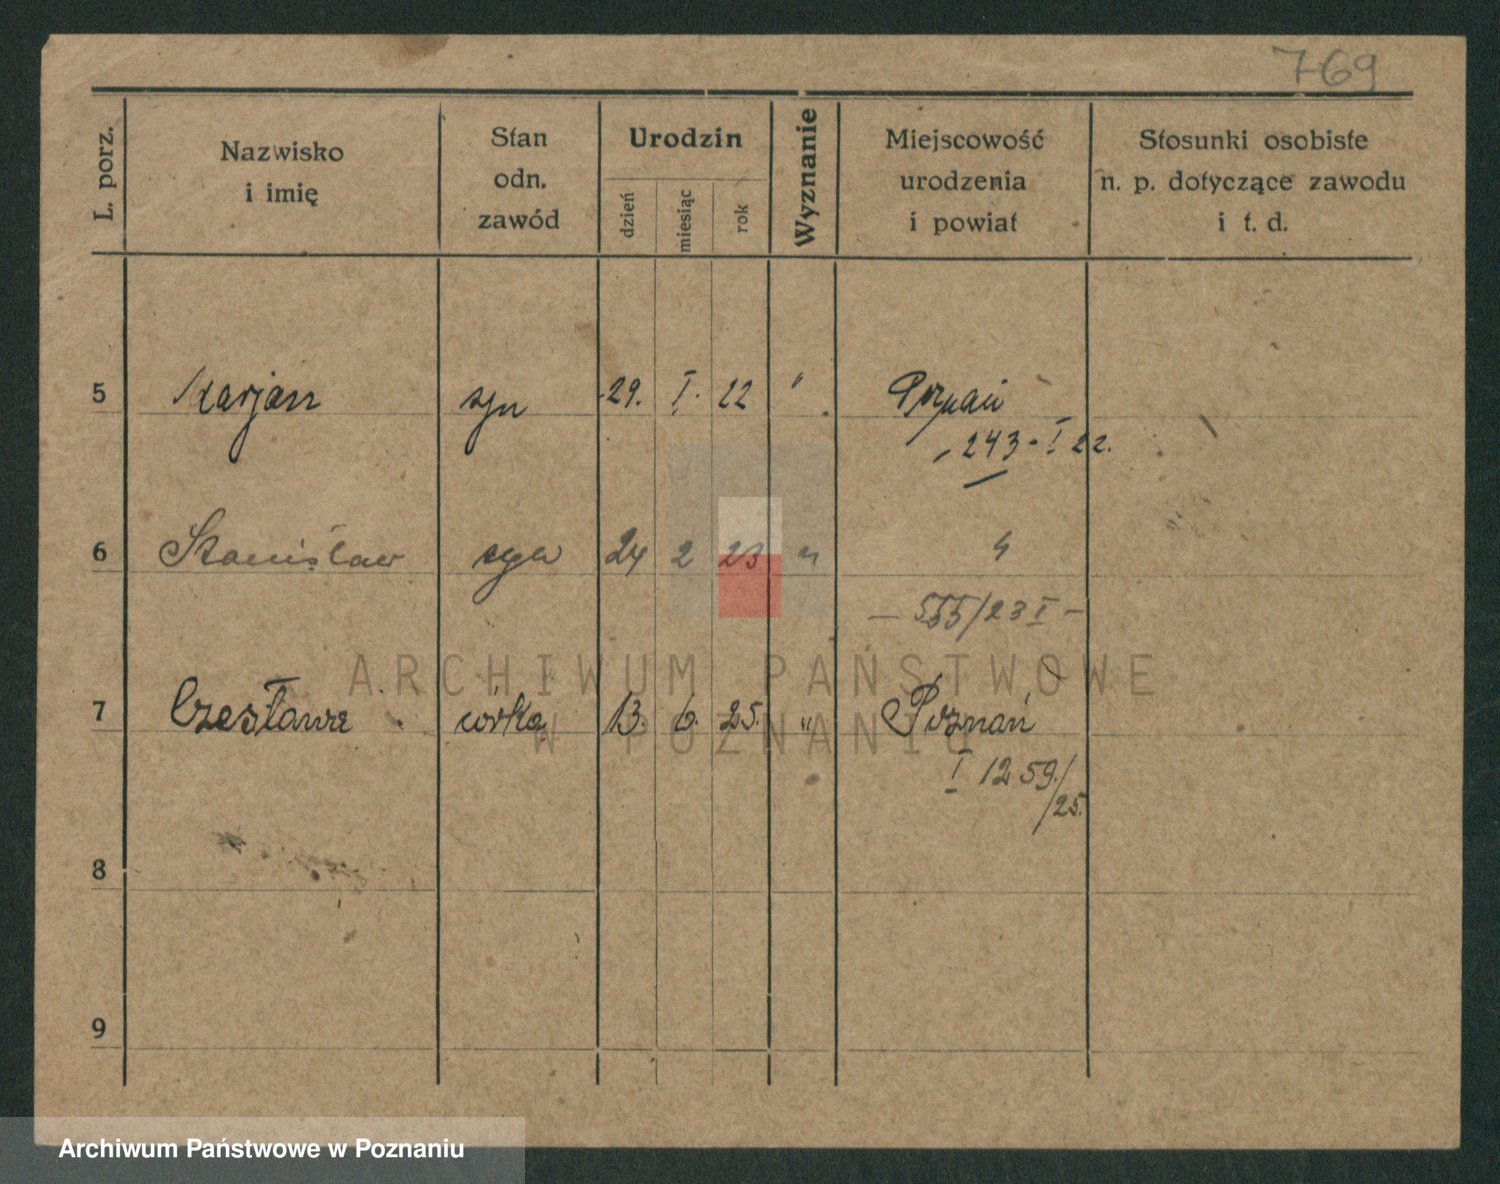 769
L. porz.
Nazwisko
i imię
Stan
odn.
zawód
Urodzin
dzień
miesiąc
rok
Wyznanie
Miejscowość
urodzenia
i powiat
Stosunki osobiste
n. p. dotyczące zawodu
i t. d.
5 Marjan syn 29. I. 22 " Poznań
243 - I 22.
6 Stanisław syn 24 2 23 " "
- 555/23 I -
ARCHIWUM PAŃSTWOWE
W POZNANIU
7 Czesława córka 13. 6. 25. " Poznań
I 1259/
25.
8
9
Archiwum Państwowe w Poznaniu